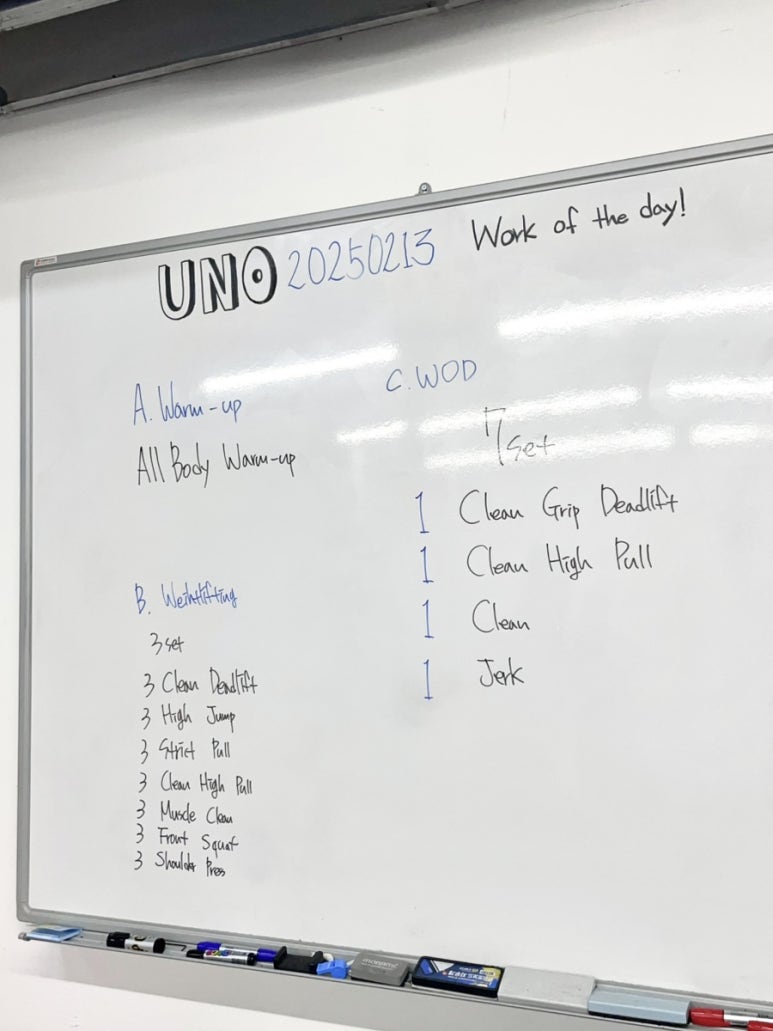 UNO 20250213 Work of the day!
A. Warm-up
All Body Warm-up
B. Weihtlifting
3 set
3 Clean Deadlift
3 High Jump
3 Strict Pull
3 Clean High Pull
3 Muscle Clean
3 Front Squat
3 Shoulder Press
C. WOD
7 set
1 Clean Grip Deadlift
1 Clean High Pull
1 Clean
1 Jerk